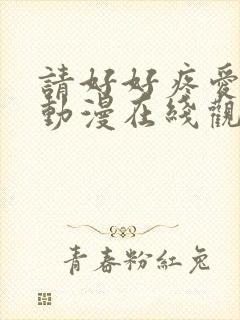 請好好疼愛
動漫在綫觀
青春粉紅兔